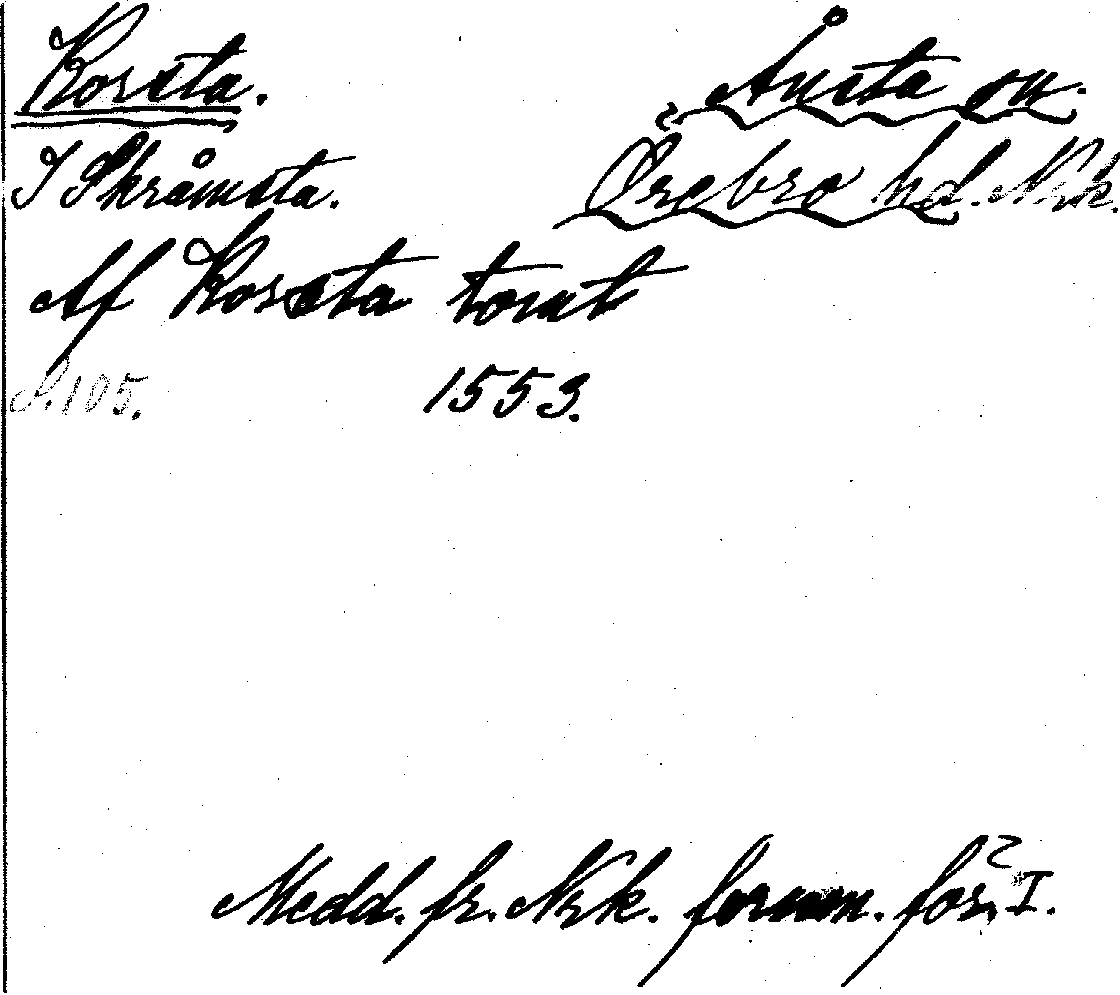 Korsta. Ånsta sn.
I Skråmsta. Örebro hd. Nrk.
Af Korsta tomt
S. 105. 1553.
Medd. fr. Nrk. fornm. för. I.